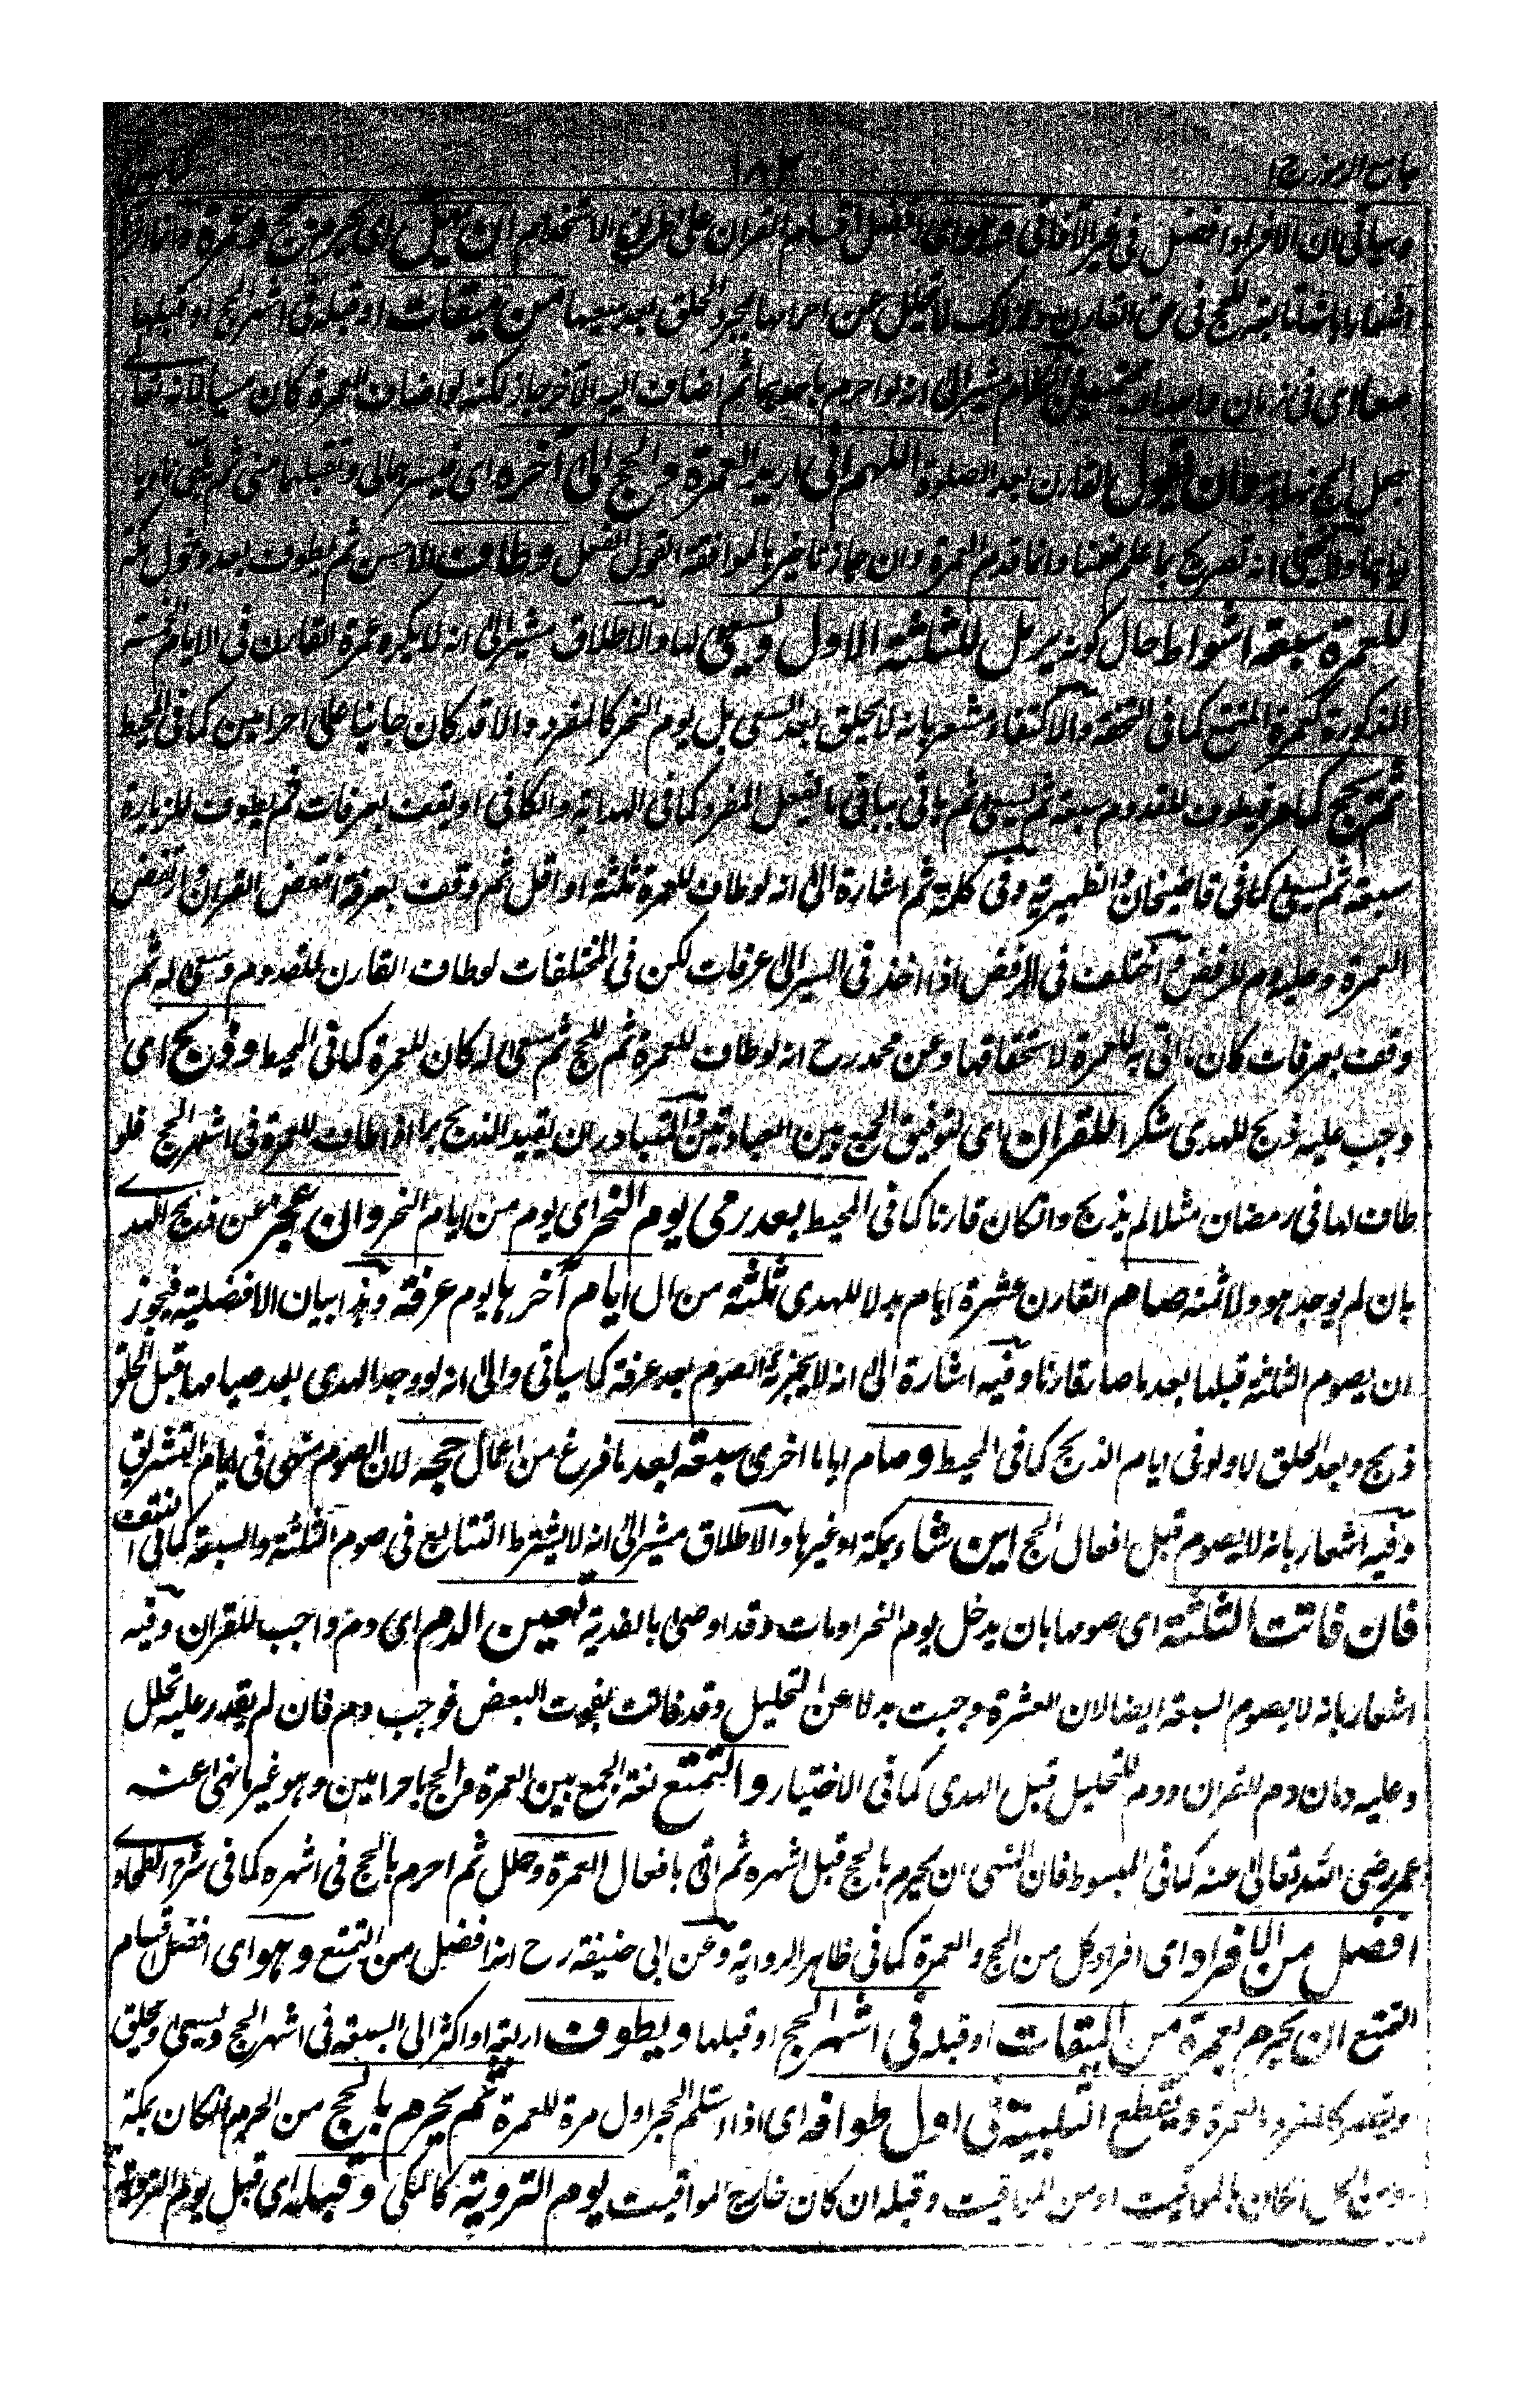 جامع الرموز ج ١
١٨٢
وسياتى ان الافراد افضل فى غير الآفاقى وهو اى افضل اقسام القران على طريق الاستخدام ان يهل اى يحرم بحج وعمرة
اشعارا بانها تابعة للحج فى حق القارن ولذلك لا يتحلل عن احرامها بمجرد الحلق بعد سعيها من ميقات او قبله فى اشهر الحج او قبلها
معا اى فى زمان الكلام مشير الى انه لو احرم باحدهما ثم اضاف اليه الآخر جاز لكنه لو اضاف العمرة كان مسيئا لانه تعالى
جعل الحج نهاية وان يقول القارن بعد الصلوة اللهم انى اريد العمرة والحج الى آخره اى فيسرهما لى وتقبلهما منى ثم يلبى ناويا
انه تصريح بما علم ضمنا وانما قدم العمرة وان جاز تاخيرها لموافقة القول الفعل وطاف الاحسن ثم يطوف بعد دخول مكة
للعمرة سبعة اشواط حال كونه يرمل للثلثة الاول ويسعى لها والاطلاق مشير الى انه لا يكره عمرة القارن فى الايام الخمسة
المذكورة كعمرة المتمتع كما فى التحفة والاكتفاء مشعر بانه لا يحلق بعد السعى بل يوم النحر كالمفرد والا قد كان جانيا على احرامين كما فى المحيط
ثم يحج كما مر فيطوف للقدوم سبعة ثم يسعى ثم ياتى بباقى ما يفعل المفرد كما فى الهداية والكافى او يقف بعرفات ثم يطوف للزيارة
سبعة ثم يسعى كما فى قاضيخان والظهيرية وفى كلمة ثم اشارة الى انه لو طاف للعمرة ثلثة او اقل ثم وقف بعرفة انتقض القران وارتفض
العمرة وعليه دم للرفض واختلف فى الرفض اذا اخذ فى السير الى عرفات لكن فى المختلفات لو طاف القارن للقدوم وسعى له ثم
وقف بعرفات كان ما اتى به للعمرة لاستحقاقها وعن محمد رح انه لو طاف للعمرة ثم للحج ثم سعى له كان للعمرة كما فى المحيط وذبح اى
وجب عليه ذبح للهدى شكرا للقران اى لتوفيق الجمع بين العبادتين والمتبادر ان يقيد الذبح بما اذا طاف للعمرة فى اشهر الحج فلو
طاف لها فى رمضان مثلا لم يذبح وان كان قارنا كما فى المحيط بعد رمى يوم النحر اى يوم من ايام النحر وان عجز عن ذبح الهدى
بان لم يوجد هو ولا ثمنه صام القارن عشرة ايام بدلا للهدى ثلثة من ال ايام آخرها يوم عرفة وهذا بيان الافضلية فيجوز
ان يصوم الثلثة قبلها بعد ما صار قارنا وفيه اشارة الى انه لا يجزئه الصوم بعد عرفة كما سياتى والى انه لو وجد الهدى بعد صيامها قبل الحلق
ذبح وبعد الحلق لا ولو فى ايام الذبح كما فى المحيط وصام اياما اخرى سبعة بعد ما فرغ من اعمال حجه لان الصوم منهى فى ايام التشريق
وفيه اشعار بانه لا يصوم قبل افعال الحج اين شاء بمكة او غيرها والاطلاق مشير الى انه لا يشترط التتابع فى صوم الثلثة والسبعة كما فى النتف
فان فاتت الثلثة اى صومها بان يدخل يوم النحر او مات وقد اوصى بالفدية تعين الدم اى دم واجب للقران وفيه
اشعار بانه لا يصوم السبعة ايضا لان العشرة وجبت بدلا عن التحليل وقد فاتت بفوت البعض فوجب دم فان لم يقدر عليه تحلل
وعليه دمان دم للقران ودم للتحليل قبل الهدى كما فى الاختيار والتمتع لغة الجمع بين العمرة والحج باحرامين وهو غير ما نهى عنه
عمر رضى الله تعالى عنه كما فى المبسوط فان المنهى ان يحرم بالحج قبل اشهره ثم اتى بافعال العمرة وحلل ثم احرم بالحج فى اشهره كما فى شرح الطحاوى
افضل من الافراد اى افراد كل من الحج والعمرة كما فى ظاهر الرواية وعن ابى حنيفة رح انه افضل من التمتع وهو اى افضل اقسام
التمتع ان يحرم بعمرة من الميقات او قبله فى اشهر الحج او قبلها ويطوف اربعة او اكثر الى السبعة فى اشهر الحج ويسعى ويحلق
ويقصر كالمفرد العمرة ويقطع التلبية فى اول طوافه اى اذا استلم الحجر اول مرة للعمرة ثم يحرم بالحج من الحرم ان كان بمكة
ومن الحل ان كان بالمواقيت او من المواقيت وقبله ان كان خارج المواقيت يوم التروية كالمكى وقبله اى قبل يوم التروية